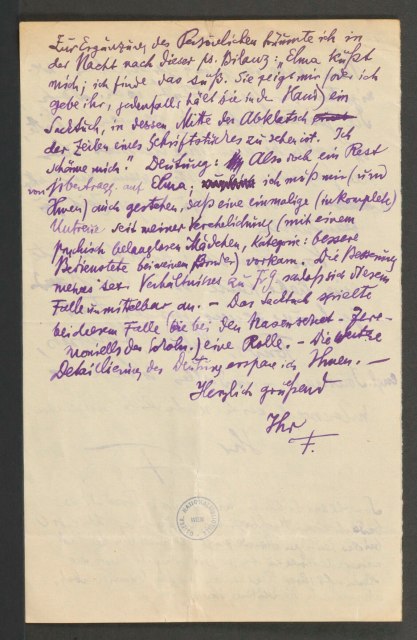 Zur Ergänzung des Persönlichen träumte ich in
der Nacht nach dieser ps. Bilanz: „Elma küßt
mich; ich finde das süß. Sie zeigt mir (oder ich
gebe ihr, jedenfalls hält sie in der Hand) ein
Sacktuch, in dessen Mitte der Abklatsch
der Zeilen eines Schriftstückes zu sehen ist. Ich
schäme mich." Deutung: Also doch ein Rest
von Übertragg. auf Elma; ich muß mir (und
Ihnen) auch gestehen, daß eine einmalige (inkomplete)
Untreue seit meiner Verehelichung (mit einem
psychisch belanglosen Mädchen, Kategorie: bessere
Bedienstete bei meinem Bruder) vorkam. Die Besserung
meines sex. Verhältnisses zu F. G. schloß sich diesem
Falle unmittelbar an. — Das Sacktuch spielte
bei diesem Falle (wie bei den Zere-
moniells der) eine Rolle. — Die weitere
Detaillierung der Deutung erspare ich Ihnen. —
Herzlich grüßend
Ihr
F.
WIEN